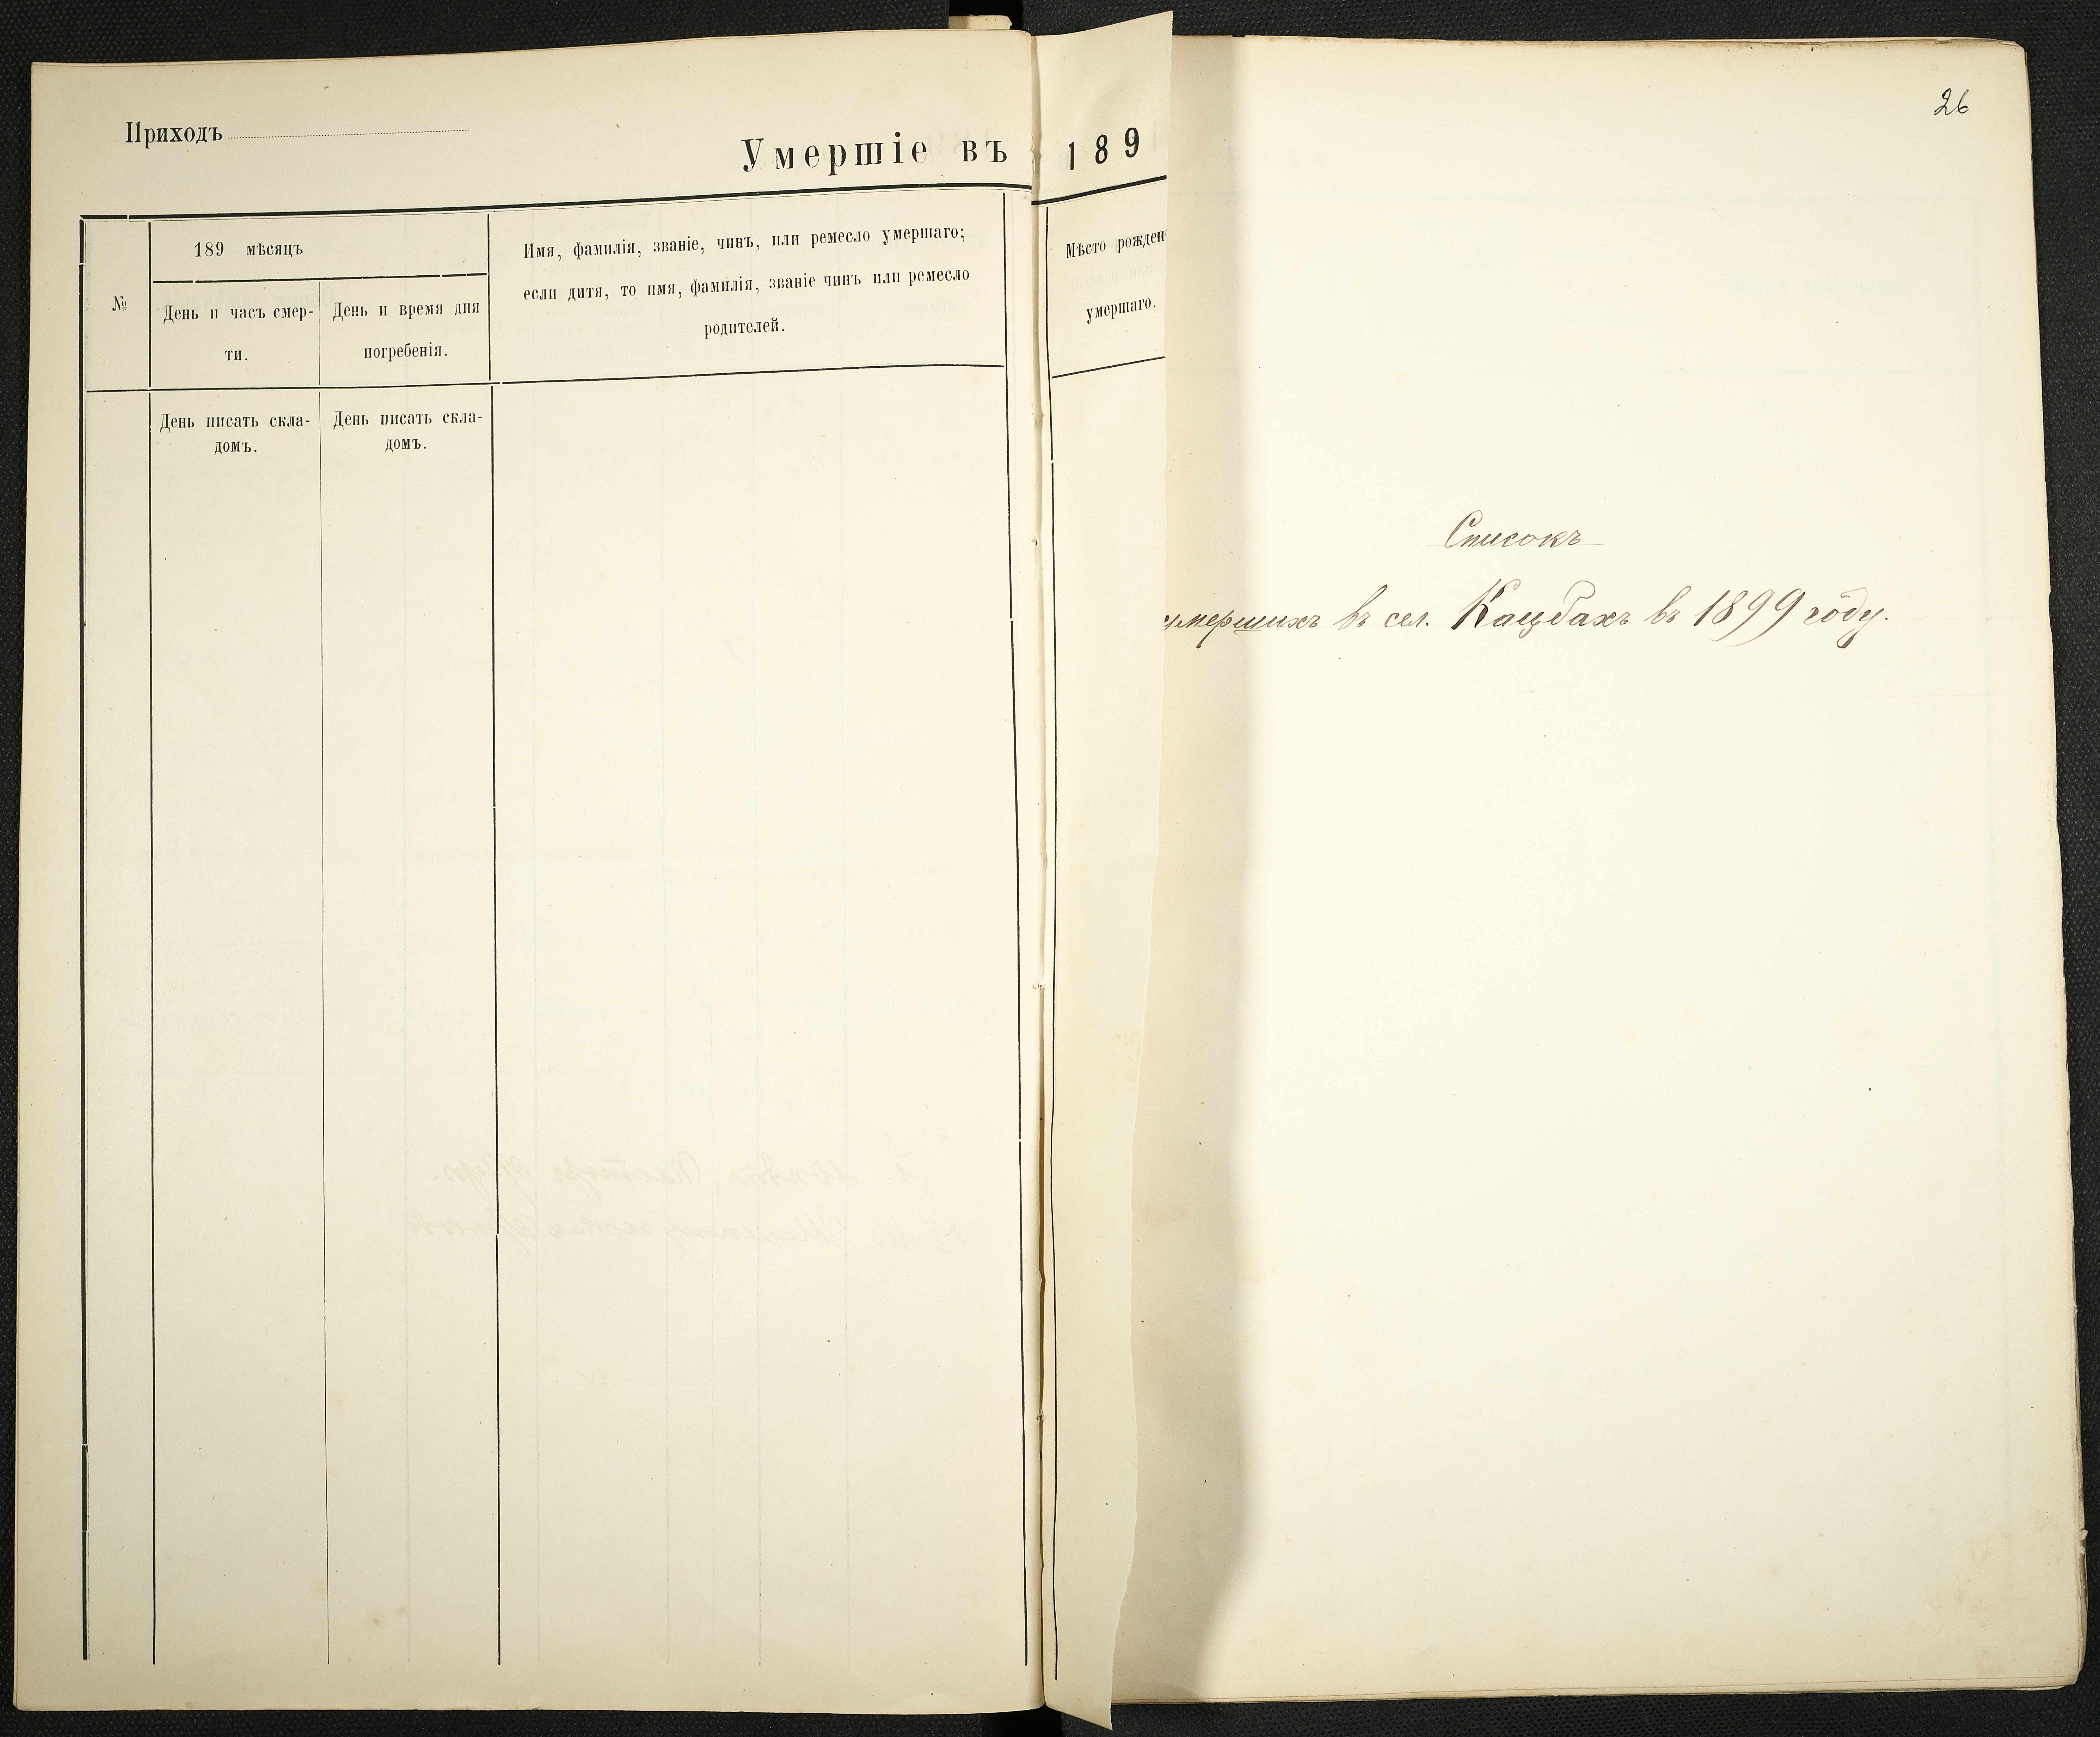 Приходъ
Умершіе въ 189
№
189 мѣсяцъ
День и часъ смер-
ти.
День и время дня
погребенія.
Имя, фамилія, званіе, чинъ, или ремесло умершаго;
если дитя, то имя, фамилія, званіе чинъ или ремесло
родителей.
Мѣсто рожден
умершаго.
День писать скла-
домъ.
День писать скла-
домъ.
26
Списокъ
умершихъ въ сел. Кацбахъ въ 1899 году.